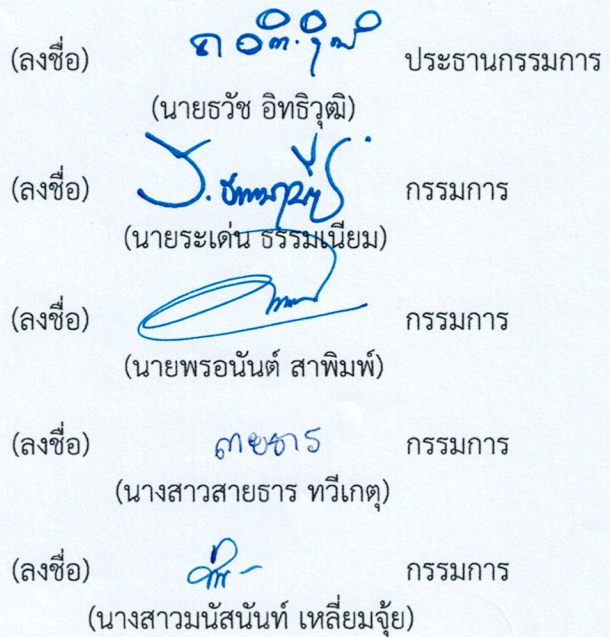 (ลงชื่อ) ประธานกรรมการ
(นายธวัช อิทธิวุฒิ)
(ลงชื่อ) กรรมการ
(นายระเด่น ธรรมเนียม)
(ลงชื่อ) กรรมการ
(นายพรอนันต์ สาพิมพ์)
(ลงชื่อ) สายธาร กรรมการ
(นางสาวสายธาร ทวีเกตุ)
(ลงชื่อ) กรรมการ
(นางสาวมนัสนันท์ เหลี่ยมจุ้ย)